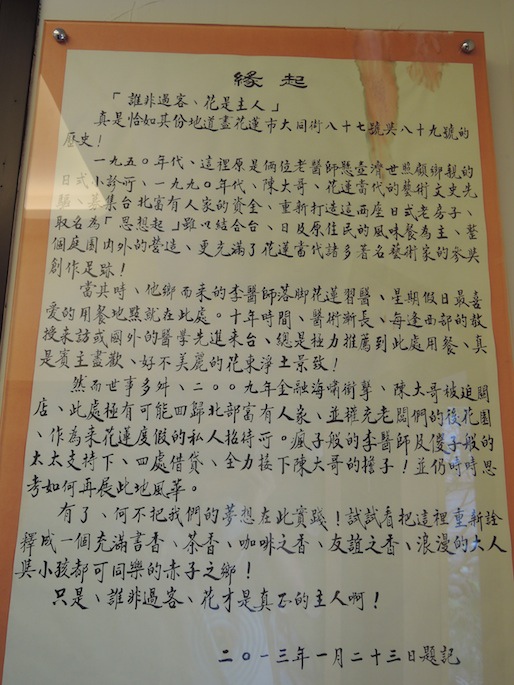 緣起
「誰非過客、花是主人」
真是恰如其份地道盡花蓮市大同街八十七號與八十九號的
歷史！
一九五〇年代、這裡原是俩位老醫師懸壺濟世照顧鄉親的
日式小診所，一九九〇年代、陳大哥、花蓮當代的藝術文史先
驅、募集台北富有人家的資金、重新打造這兩座日式老房子、
取名為「思想起」雖以結合台、日及原住民的風味餐為主、整
個庭園內外的營造、更充滿了花蓮當代諸多著名藝術家的參與
創作足跡！
當其時、他鄉而來的李醫師落脚花蓮習醫、星期假日最喜
愛的用餐地點就在此處。十年時間、醫術漸長、每逢西部的教
授來訪或國外的醫學先進來台、總是極力推薦到此處用餐、真
是賓主盡歡、好不美麗的花東淨土景致！
然而世事多舛、二〇〇九年金融海嘯衝擊、陳大哥被迫關
店、此處極有可能回歸北部富有人家、並權充老闆們的後花園
、作為來花蓮度假的私人招待所。瘋子般的李醫師及傻子般的
太太支持下、四處借貸、全力接下陳大哥的擔子！並仍時時思
考如何再展此地風華。
有了、何不把我們的夢想在此實踐！試試看把這裡重新詮
釋成一個充滿書香、茶香、咖啡之香、友誼之香、浪漫的大人
與小孩都可同樂的赤子之鄉！
只是、誰非過客、花才是真正的主人啊！
二〇一三年一月二十三日題記